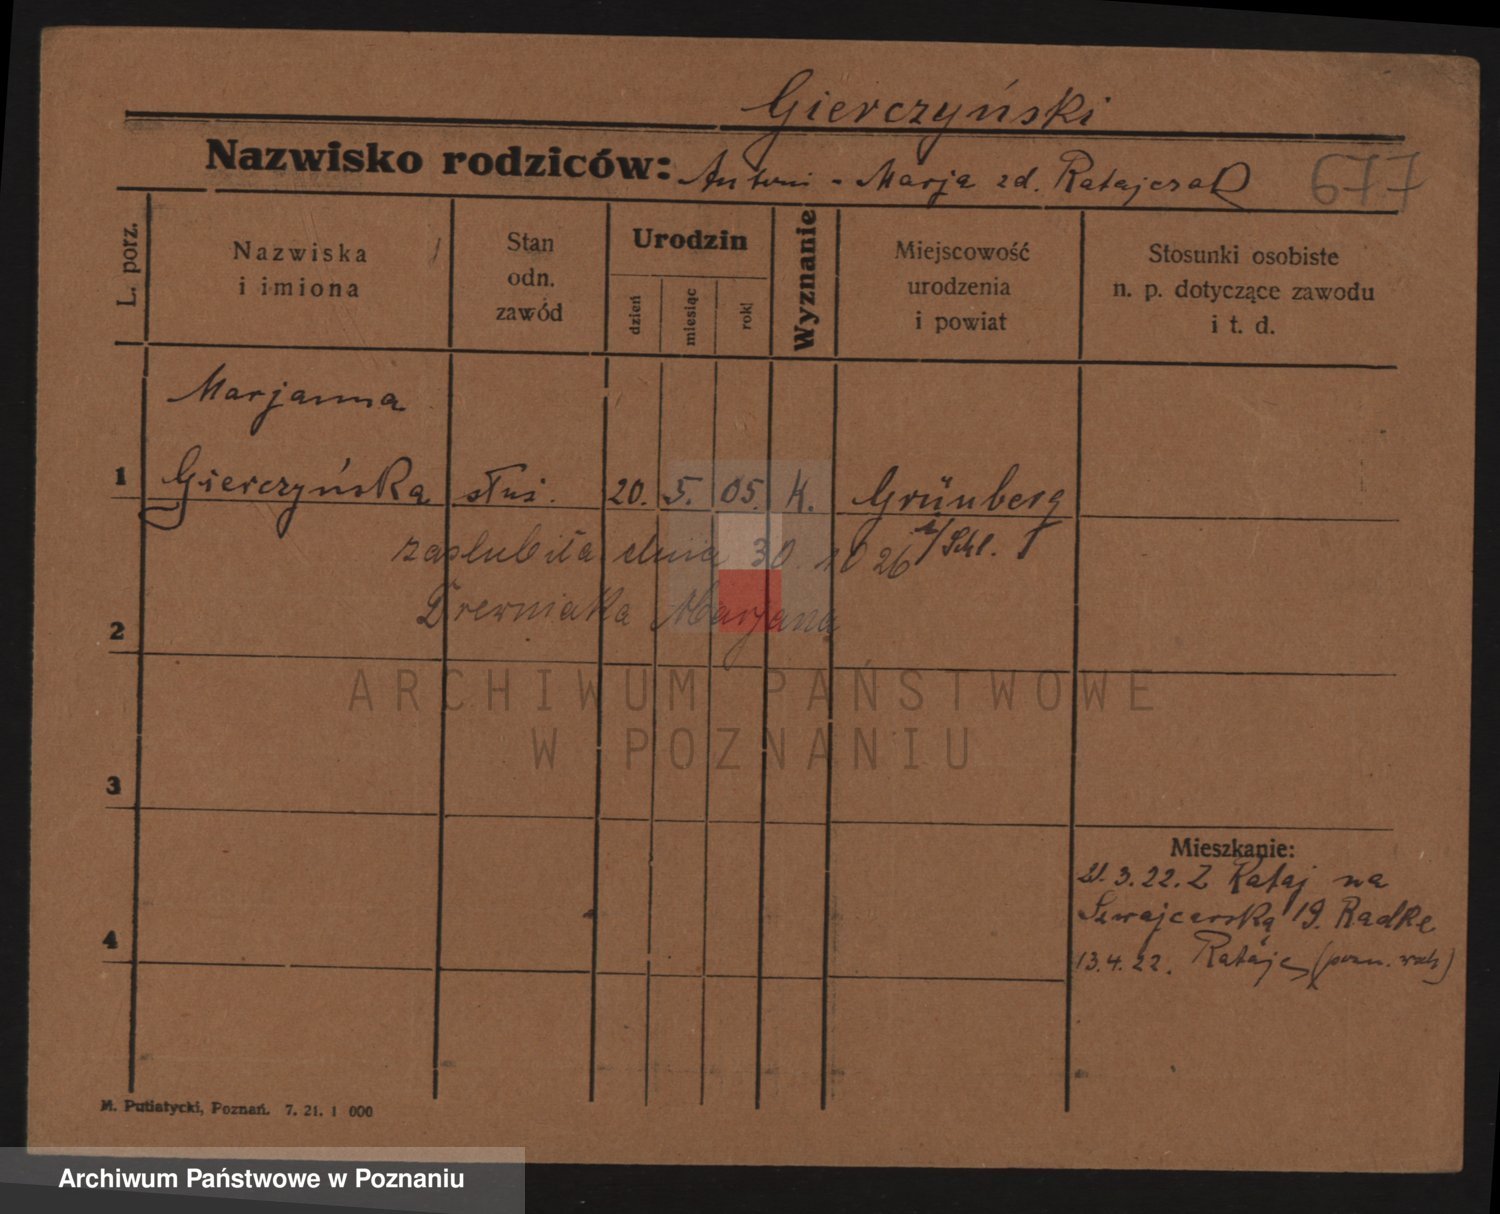 Gierczyński
Nazwisko rodziców: Antoni - Marja zd. Ratajczak 677
L. porz.
Nazwiska i imiona
Stan odn. zawód
Urodzin
dzień miesiąc rok
Wyznanie
Miejscowość urodzenia i powiat
Stosunki osobiste n. p. dotyczące zawodu i t. d.
Marjanna
1 Gierczyńska służ. 20. 5. 05. k. Grünberg
zaslubiła dnia 30. 10 26 /Schl.
2 Drewniaka Marjana
ARCHIWUM PAŃSTWOWE
W POZNANIU
3
Mieszkanie:
21.3.22. Z Rataj na
Szwajcarską 19. Radke
4
13.4.22. Rataje
M. Putiatycki, Poznań. 7. 21. 1 000
Archiwum Państwowe w Poznaniu